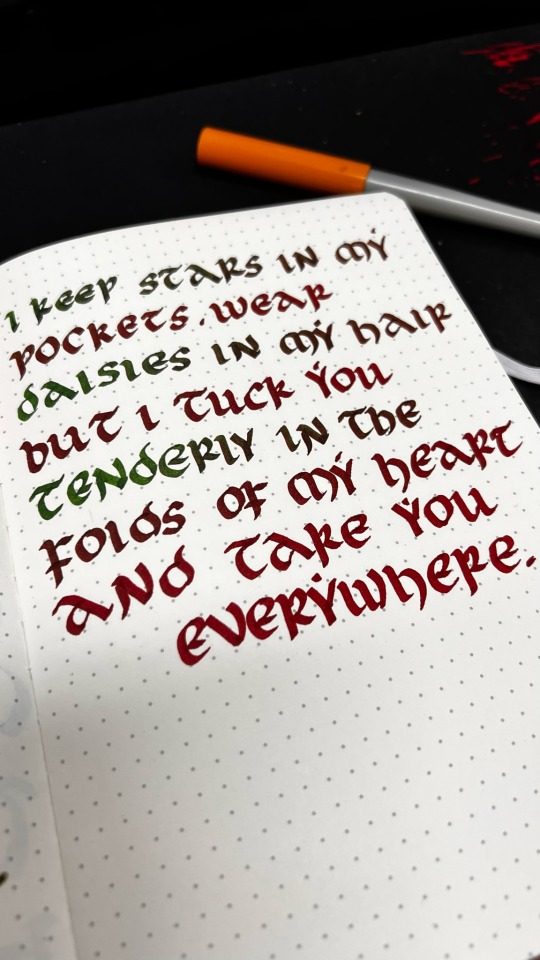 I keep stars in my
pockets. wear
daisies in my hair
but I tuck you
tenderly in the
folds of my heart
and take you
everywhere.